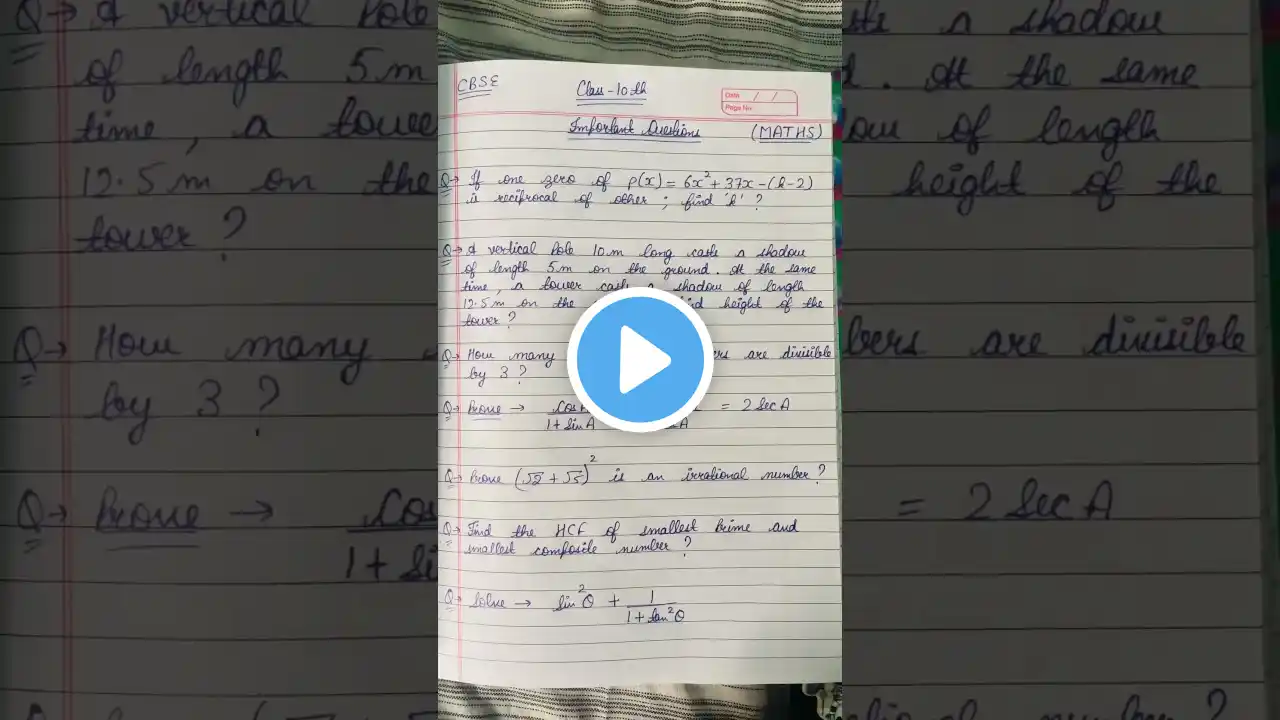 CBSE
Class-10th
Date / /
Page No.
Important Questions (MATHS)
Q→ If one zero of p(x) = 6x² + 37x - (k-2)
is reciprocal of other ; find 'k' ?
Q→ A vertical Pole 10m long casts a shadow
of length 5m on the ground. At the same
time, a tower casts a shadow of length
12.5m on the height of the
tower ?
Q→ How many are divisible
by 3 ?
Q→ Prove → = 2 Sec A
1 + Sin A
Q→ Prove (√2 + √5)² is an irrational number ?
Q→ Find the HCF of smallest Prime and
smallest composite number ?
Q→ Solve → Sin²θ + 1
1 + tan²θ